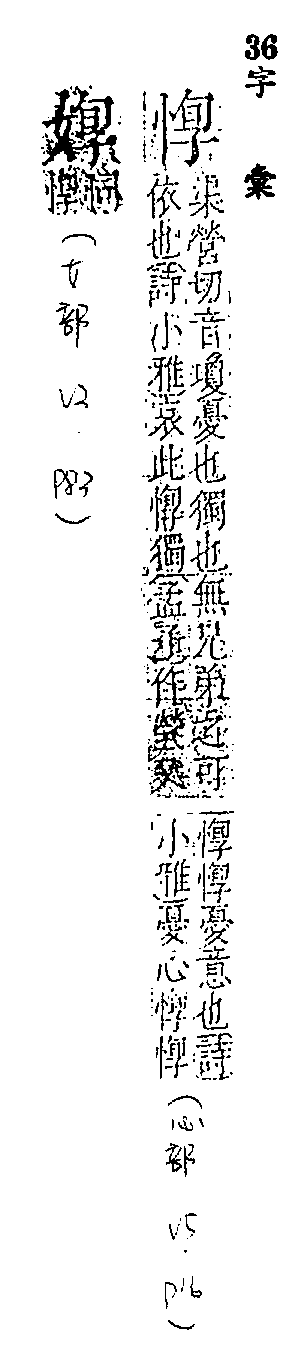 36
字彙
惸
渠營切音瓊憂也獨也無兄弟可
依也詩小雅哀此惸獨孟作煢又
惸惸憂意也詩
小雅憂心惸惸
(心部 V5. P16)
惸
(女部 V2. P83)